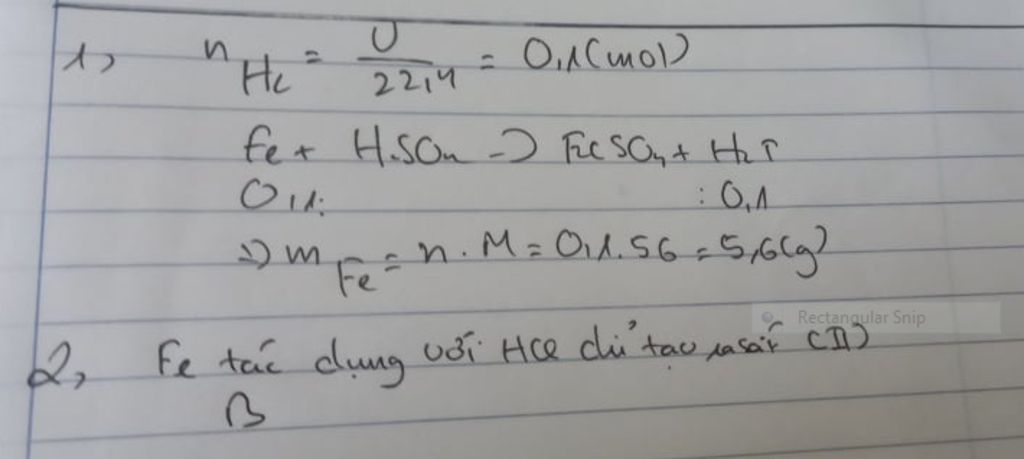 1, n H₂ = V / 22,4 = 0,1 (mol)
Fe + H₂SO₄ → FeSO₄ + H₂ ↑
0,1: : 0,1
⇒ m Fe = n . M = 0,1 . 56 = 5,6 (g)
Rectangular Snip
2, Fe tác dụng với HCl chỉ tạo ra sắt (II)
B